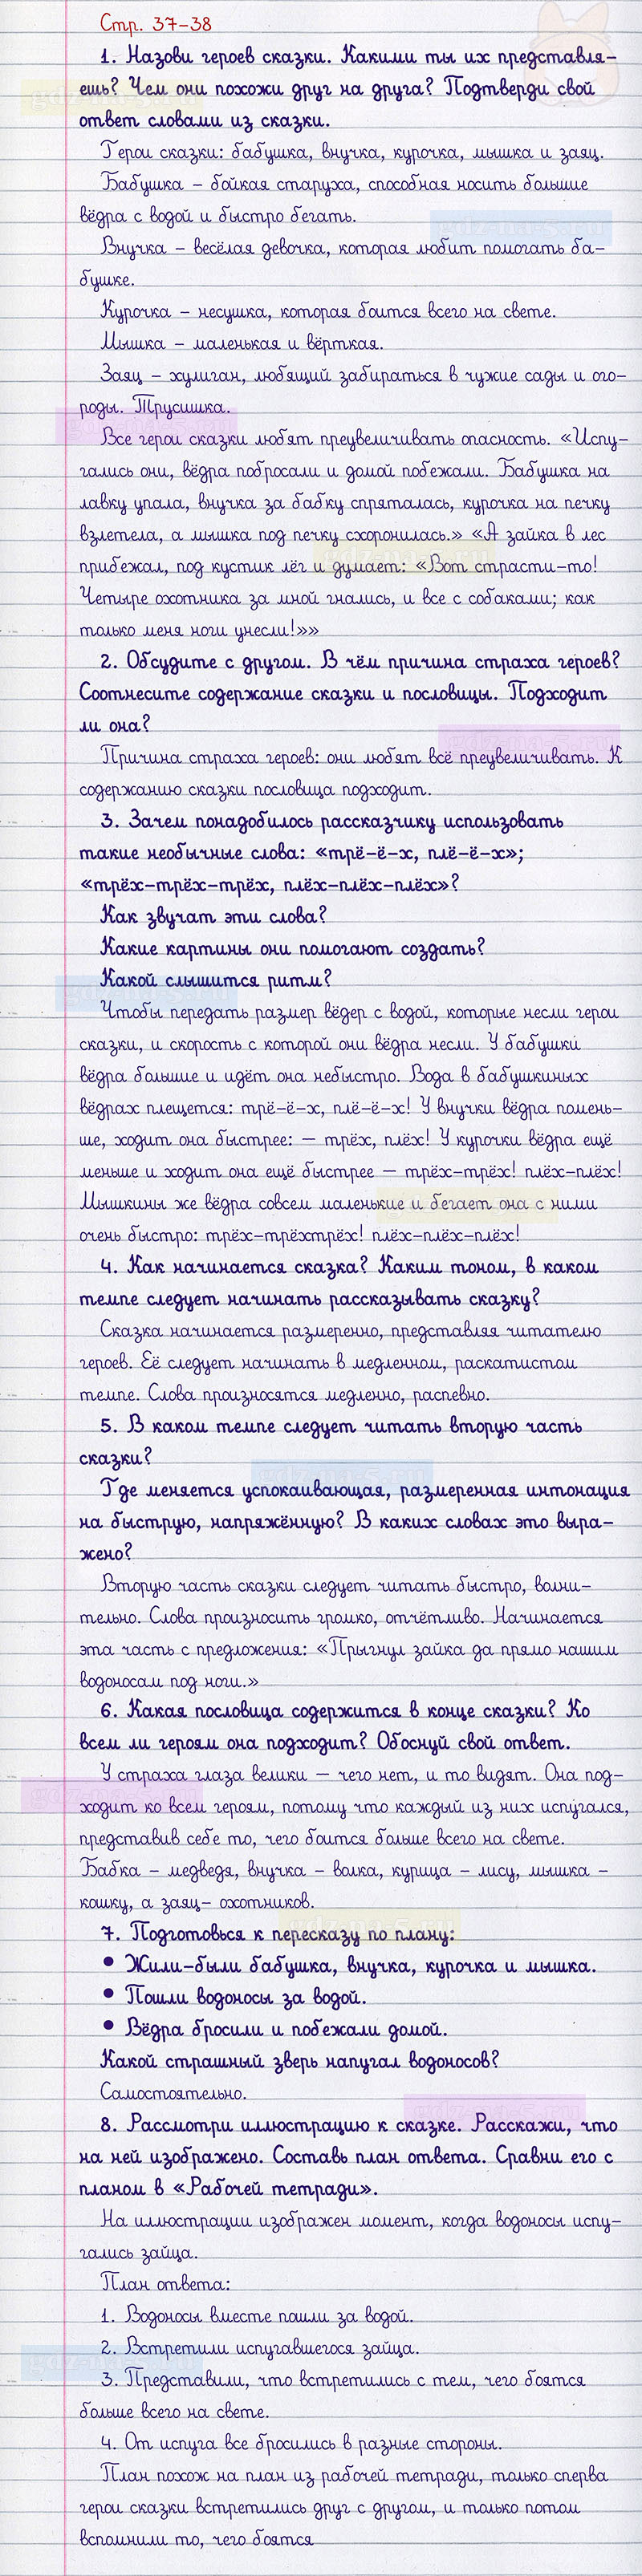 Стр. 37-38
1. Назови героев сказки. Какими ты их представля-
ешь? Чем они похожи друг на друга? Подтверди свой
ответ словами из сказки.
Герои сказки: бабушка, внучка, курочка, мышка и заяц.
Бабушка – бойкая старуха, способная носить большие
вёдра с водой и быстро бегать.
Внучка – весёлая девочка, которая любит помогать ба-
бушке.
Курочка – несушка, которая боится всего на свете.
Мышка – маленькая и вёрткая.
Заяц – хулиган, любящий забираться в чужие сады и ого-
роды. Трусишка.
Все герои сказки любят преувеличивать опасность. «Испу-
гались они, вёдра побросали и домой побежали. Бабушка на
лавку упала, внучка за бабку спряталась, курочка на печку
взлетела, а мышка под печку схоронилась.» «А зайка в лес
прибежал, под кустик лёг и думает: «Вот страсти-то!
Четыре охотника за мной гнались, и все с собаками; как
только меня ноги унесли!»»
2. Обсудите с другом. В чём причина страха героев?
Соотнесите содержание сказки и пословицы. Подходит
ли она?
Причина страха героев: они любят всё преувеличивать. К
содержанию сказки пословица подходит.
3. Зачем понадобилось рассказчику использовать
такие необычные слова: «трё-ё-х, плё-ё-х»;
«трёх-трёх-трёх, плёх-плёх-плёх»?
Как звучат эти слова?
Какие картины они помогают создать?
Какой слышится ритм?
Чтобы передать размер вёдер с водой, которые несли герои
сказки, и скорость с которой они вёдра несли. У бабушки
вёдра большие и идёт она небыстро. Вода в бабушкиных
вёдрах плещется: трё-ё-х, плё-ё-х! У внучки вёдра помень-
ше, ходит она быстрее: — трёх, плёх! У курочки вёдра ещё
меньше и ходит она ещё быстрее — трёх-трёх! плёх-плёх!
Мышкины же вёдра совсем маленькие и бегает она с ними
очень быстро: трёх-трёхтрёх! плёх-плёх-плёх!
4. Как начинается сказка? Каким тоном, в каком
темпе следует начинать рассказывать сказку?
Сказка начинается размеренно, представляя читателю
героев. Её следует начинать в медленном, раскатистом
темпе. Слова произносятся медленно, распевно.
5. В каком темпе следует читать вторую часть
сказки?
Где меняется успокаивающая, размеренная интонация
на быструю, напряжённую? В каких словах это выра-
жено?
Вторую часть сказки следует читать быстро, волни-
тельно. Слова произносить громко, отчётливо. Начинается
эта часть с предложения: «Прыгнул зайка да прямо нашим
водоносам под ноги.»
6. Какая пословица содержится в конце сказки? Ко
всем ли героям она подходит? Обоснуй свой ответ.
У страха глаза велики — чего нет, и то видят. Она под-
ходит ко всем героям, потому что каждый из них испугался,
представив себе то, чего боится больше всего на свете.
Бабка – медведя, внучка – волка, курица – лису, мышка –
кошку, а заяц- охотников.
7. Подготовься к пересказу по плану:
• Жили-были бабушка, внучка, курочка и мышка.
• Пошли водоносы за водой.
• Вёдра бросили и побежали домой.
Какой страшный зверь напугал водоносов?
Самостоятельно.
8. Рассмотри иллюстрацию к сказке. Расскажи, что
на ней изображено. Составь план ответа. Сравни его с
планом в «Рабочей тетради».
На иллюстрации изображен момент, когда водоносы испу-
гались зайца.
План ответа:
1. Водоносы вместе пошли за водой.
2. Встретили испугавшегося зайца.
3. Представили, что встретились с тем, чего боятся
больше всего на свете.
4. От испуга все бросились в разные стороны.
План похож на план из рабочей тетради, только сперва
герои сказки встретились друг с другом, и только потом
вспомнили то, чего боятся